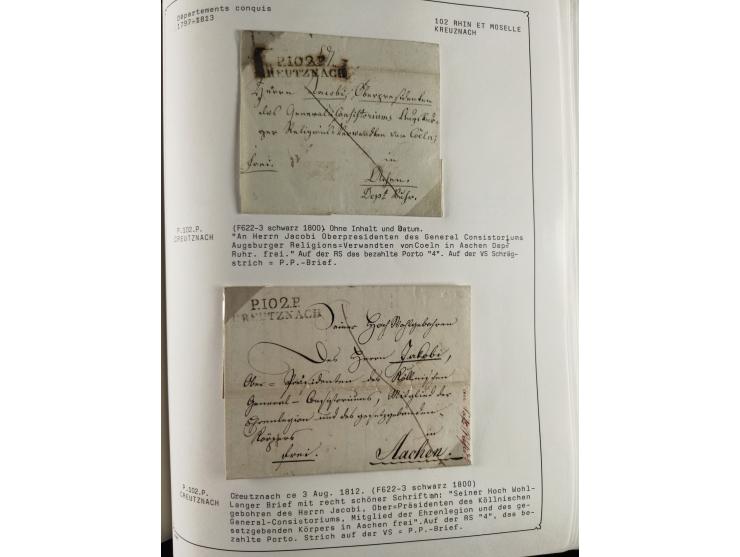 Départements conquis
1797-1813
102 RHIN ET MOSELLE
KREUZNACH
P.102.P.
CREUTZNACH
Herrn Jacobi, Oberpresidenten
des General Consistoriums Augsbur-
ger Religions Verwandten von Cöeln;
in
frei.
Achen.
Dept Ruhr.
P.102.P.
CREUTZNACH
(F622-3 schwarz 1800) Ohne Inhalt und Datum.
"An Herrn Jacobi Oberpresidenten des General Consistoriums
Augsburger Religions=Verwandten von Coeln in Aachen Dept
Ruhr. frei." Auf der RS das bezahlte Porto "4". Auf der VS Schräg-
strich = P.P.-Brief.
P.102.P.
CREUTZNACH
Seiner Hoch Wohlgebohren
Des Herrn Jakobi,
Ober-Präsidenten des Köllnischen
General-Consistoriums, Mitglied der
Ehrenlegion und des gesetzgebenden-
Körpers
in
frei.
Aachen.
P.102.P.
CREUTZNACH
Creutznach ce 3 Aug. 1812. (F622-3 schwarz 1800)
Langer Brief mit recht schöner Schrift an: "Seiner Hoch Wohl-
gebohren des Herrn Jacobi, Ober=Präsidenten des Köllnischen
General-Consistoriums, Mitglied der Ehrenlegion und des ge-
setzgebenden Körpers in Aachen frei". Auf der RS "4", das be-
zahlte Porto. Strich auf der VS = P.P.-Brief.